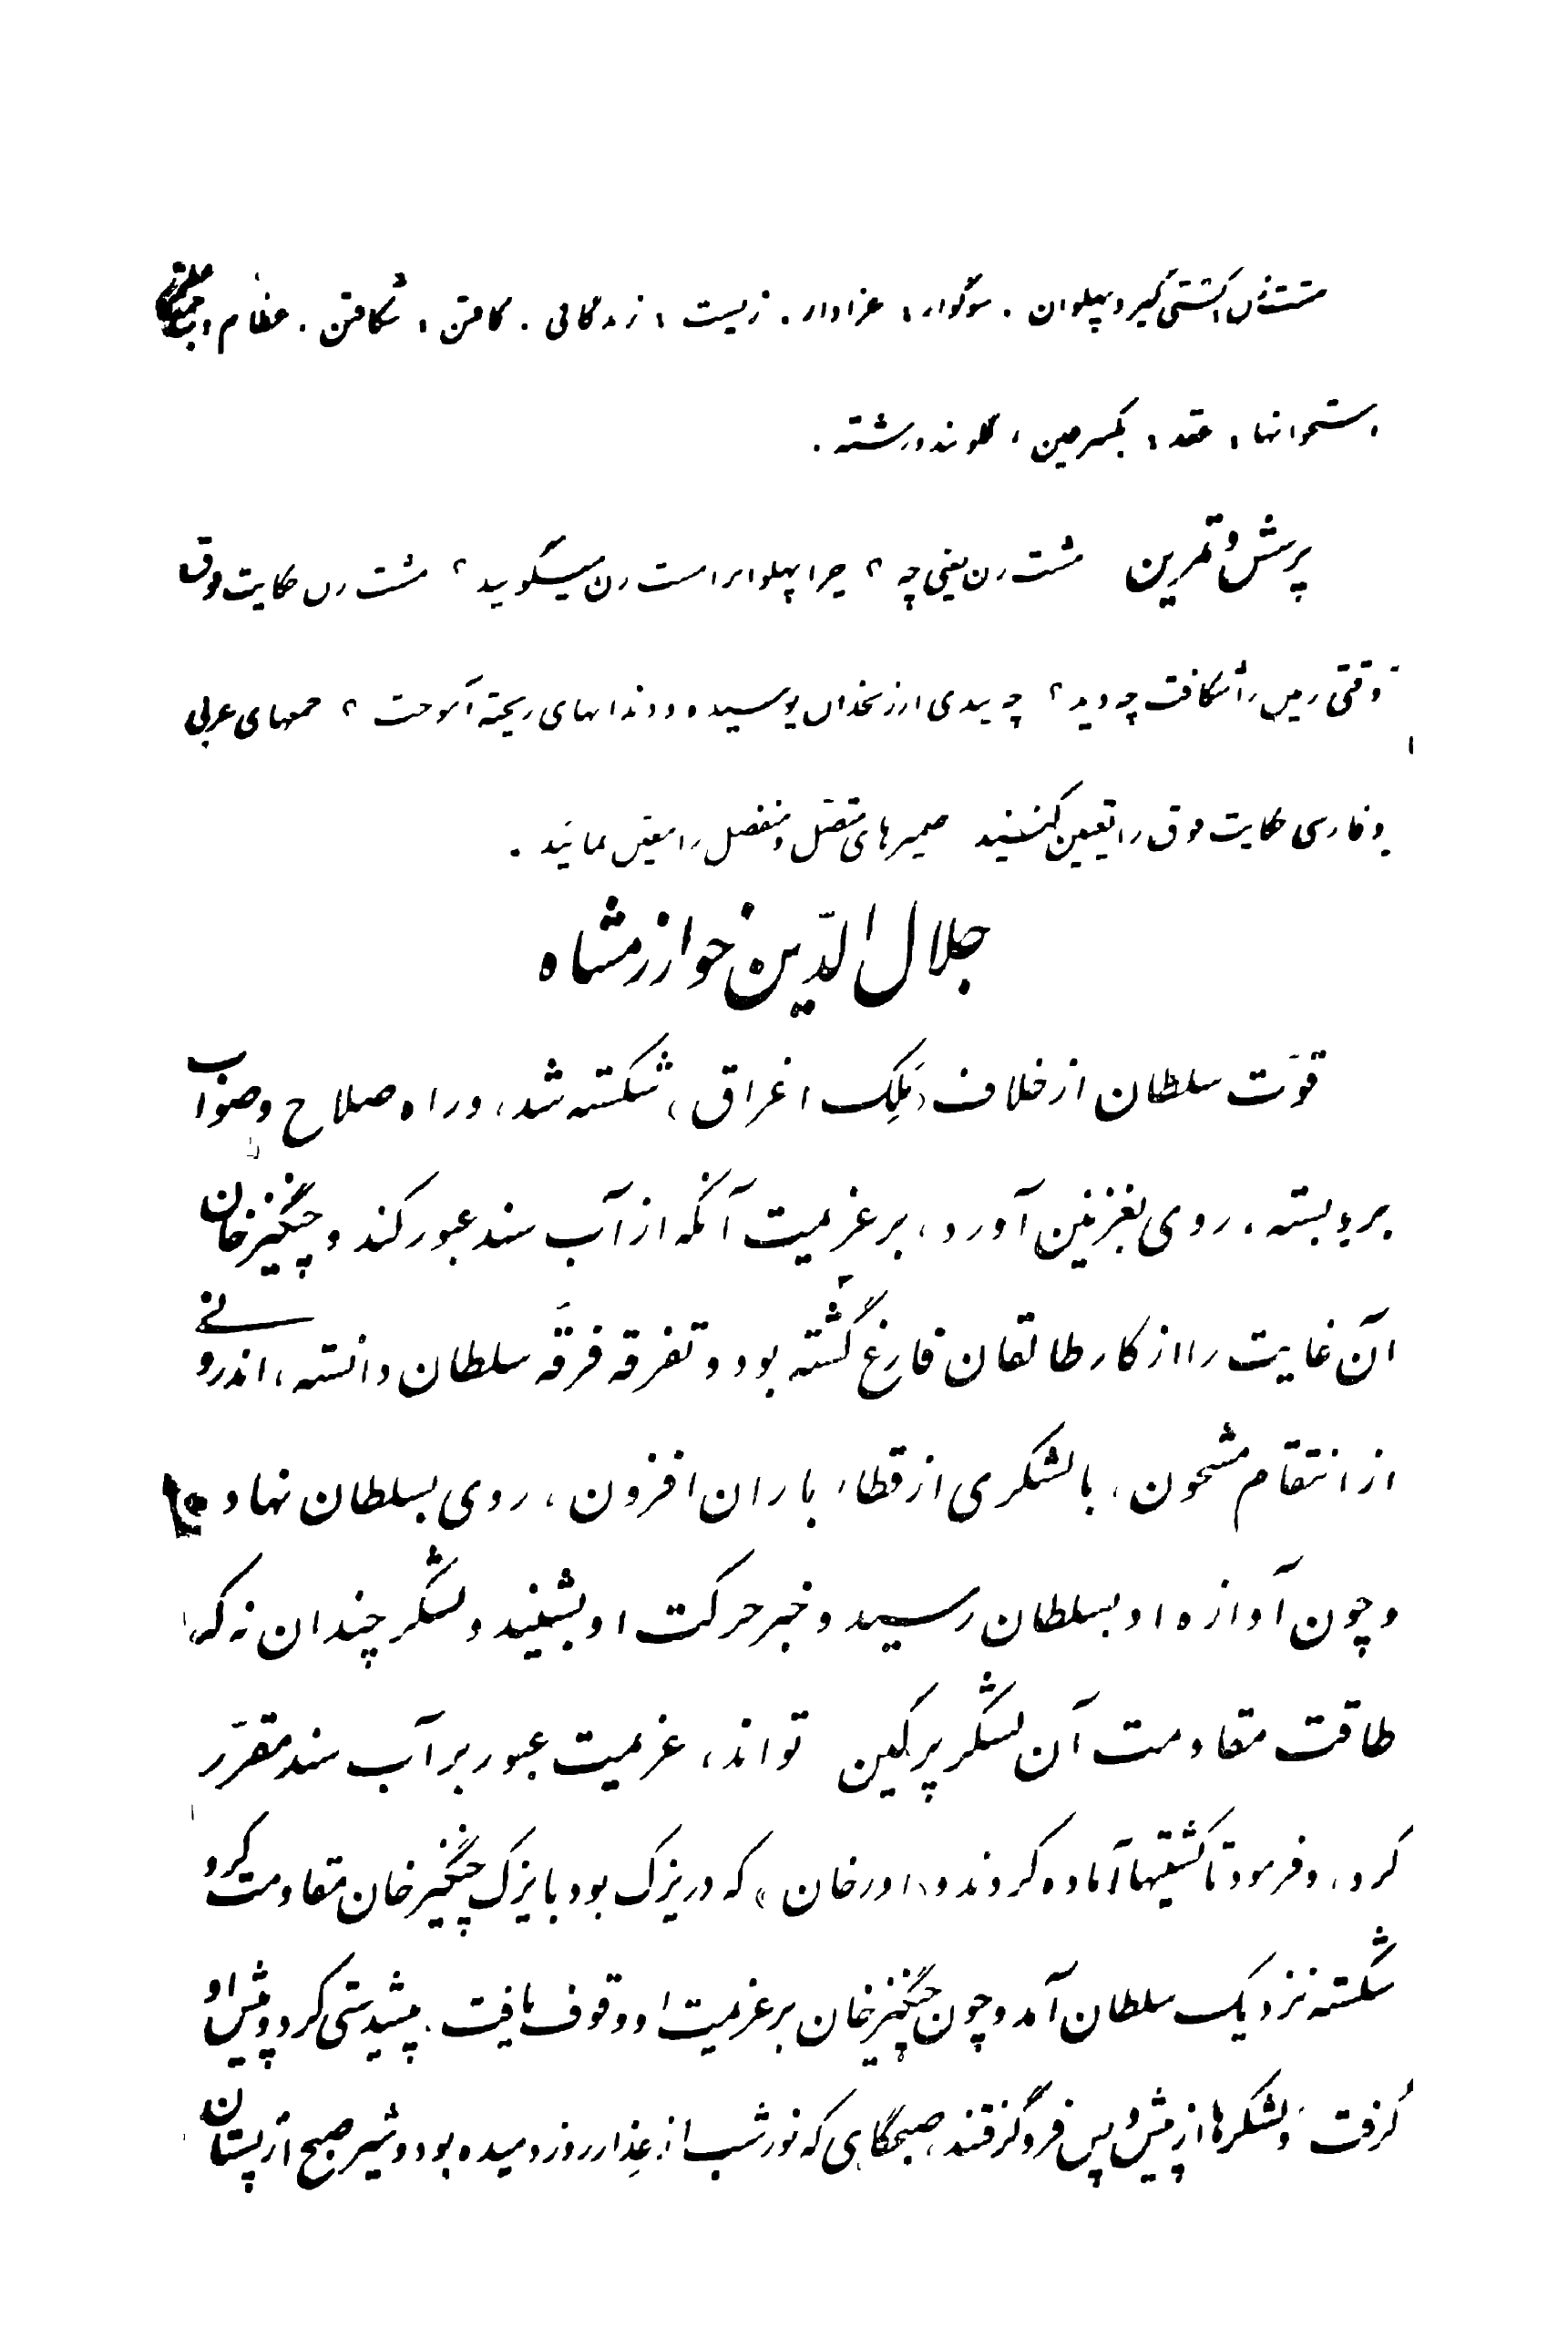 مشت‌زن، کشتی‌گیر و پهلوان . سوگوار، عزادار . زیست، زندگانی . کافتن، شکافتن . عظام،
استخوانها، عقد، بکسر عین، گلوبند و رشته .
پرسش و تمرین مشت زن یعنی چه ؟ چرا پهلوان را مشت زن میگویند ؟ مشت زن حکایت فوق
وقتی زمین را شکافت چه دید ؟ چه پندی از زنخدان پوسیده و دندانهای ریخته آموخت ؟ جمعهای عربی
و فارسی حکایت فوق را تعیین کنید ضمیرهای متصل و منفصل را معین نمائید .
جلال الدّین خوارزمشاه
قوّت سلطان از خلاف (مَلِک اغراق) شکسته شد، و راه صلاح و صواب
برو بسته . روی بغزنین آورد، بر عزیمت آنکه از آب سند عبور کند و چنگیزخان
آن غایت را از کار طالقان فارغ گشته بود و تفرقه فرقه سلطان دانسته، اندرونی
از انتقام مشحون، با لشکری از قطار باران افزون، روی بسلطان نهاد
و چون آوازه او بسلطان رسید و خبر حرکت او بشنید و لشکر چندان نه که
طاقت مقاومت آن لشکر پرکین تواند، عزیمت عبور بر آب سند مقرّر
کرد، و فرمود تا کشتیها آماده کردند و (اورخان) که در یزک بود با یزک چنگیز خان مقاومت کرد
شکسته نزدیک سلطان آمد و چون چنگیزخان بر عزیمت او وقوف یافت . پیشدستی کرد و پیش او
گرفت و لشکرها از پیش و پس فرو گرفتند، صبحگاهی که نور شب از عِذار روز دمیده بود و شیر صبح از پستان